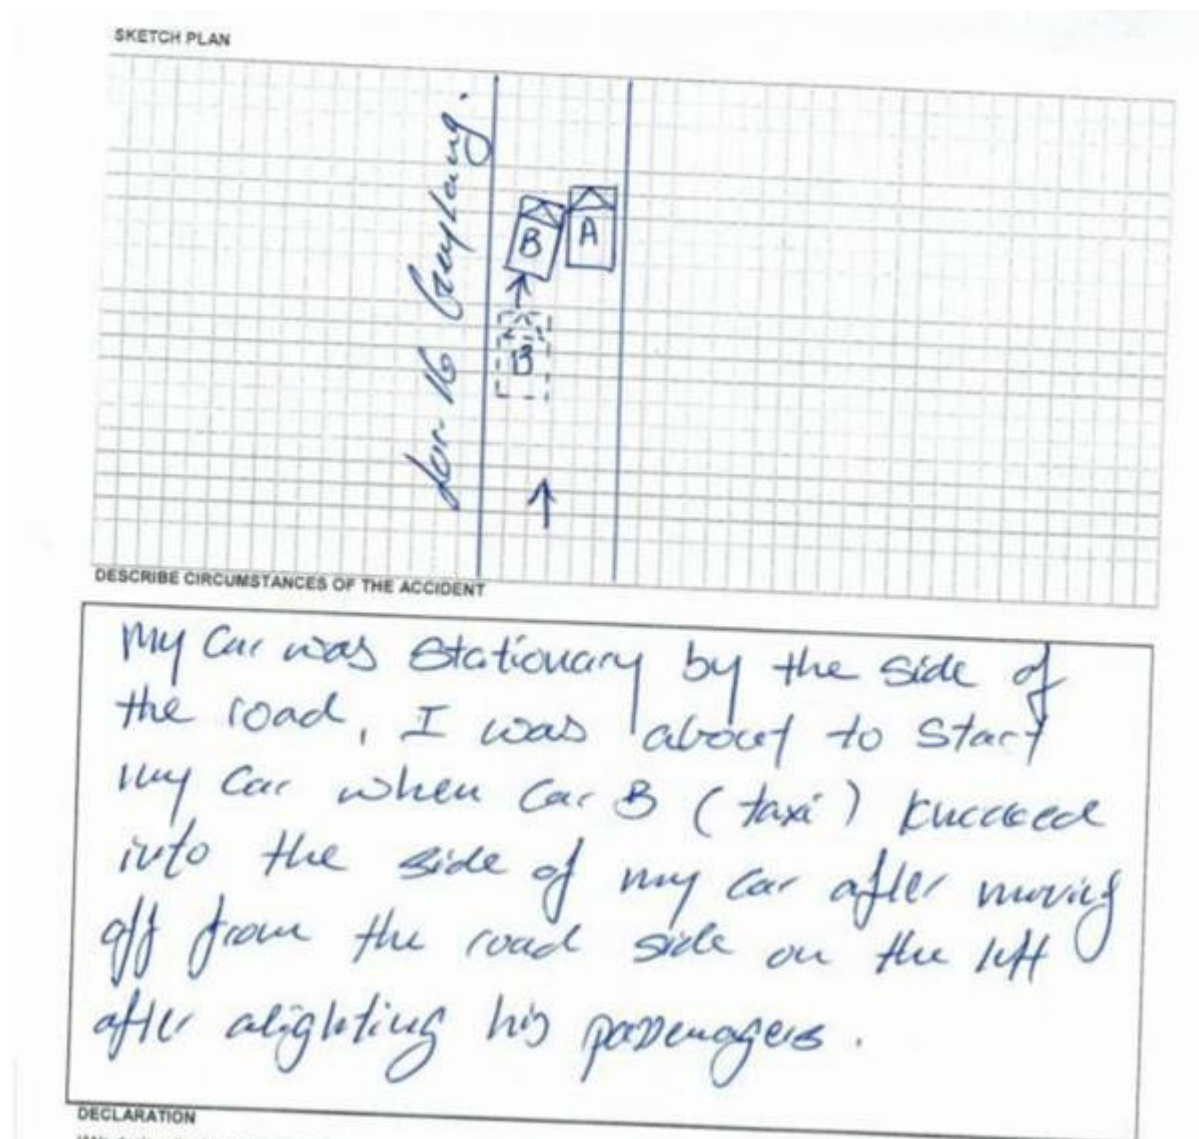 SKETCH PLAN
Lor 16 Geylang.
B
A
B
DESCRIBE CIRCUMSTANCES OF THE ACCIDENT
My Car was stationary by the side of
the road, I was about to start
my Car when Car B (taxi) knocked
into the side of my car after moving
off from the road side on the left
after alighting his passengers.
DECLARATION